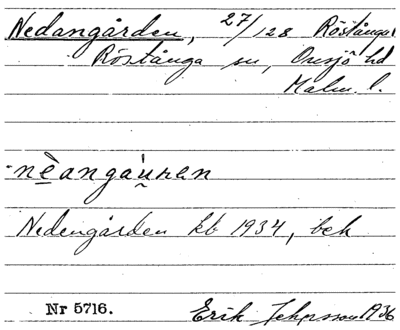 Nedangården, 27/128 Röstånga
Röstånga sn, Onsjö hd
Malm. l.
nèangau̯ṛən
Nedengården kb 1934, bek
Nr 5716.
Erik Jeppsson 1936